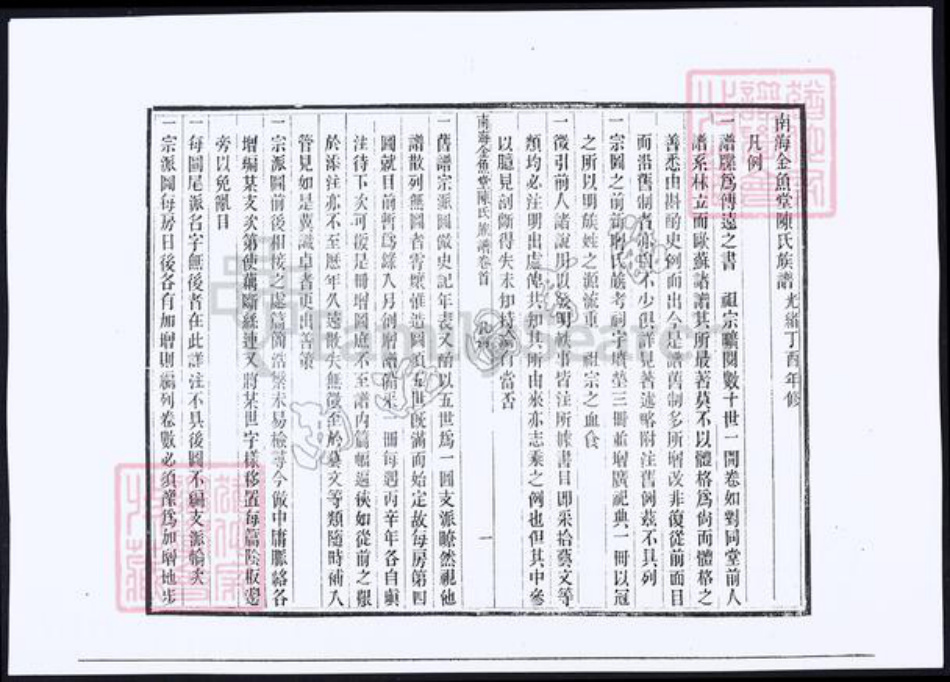 南海金魚堂陳氏族譜 光緒丁酉年修
凡例
一譜牒為傳遠之書 祖宗曠閱數十世一開卷如對同堂前人
譜系林立而歐蘇諸譜其所最著莫不以體格為尚而體格之
善悉由斟酌史例而出今是譜舊制多所增改非復從前面目
而沿舊制者亦自不少俱詳見著述略附注舊例茲不具列
一宗圖之前新增氏族考祠宇墳塋三冊並增廣祀典一冊以冠
之所以明族姓之源流重 祖宗之血食
一徵引前人諸說用以發明軼事皆注所據書目即采拾藝文等
類均必注明出處俾共知其所由來亦志乘之例也但其中參
以臆見剖斷得失未知持論有當否
南海金魚堂陳氏族譜卷首 凡例 一
一舊譜宗派圖倣史記年表又酌以五世為一圖支派瞭然視他
譜散列無圖者霄壤惟造圖真五世既滿而始定故每房第四
圖就目前暫為錄入另創增譜備采一冊每遇丙辛年各自填
注待下次可復是冊增圖庶不至譜內篇幅過狹如從前之艱
於添注亦不至歷年久遠散失無徵至於藝文等類隨時補入
管見如是冀識卓者更出善策
一宗派圖前後相接之處篇簡浩繁未易檢尋今倣中庸脈絡各
增編某支次第使藕斷絲連又將某世字樣移置每篇陰板邊
旁以免亂目
一每圖尾派名字無後者在此詳注不具後圖不編支派輪次
一宗派圖每房日後各有加增則編列卷數必須豫為加增地步
FamilySearch